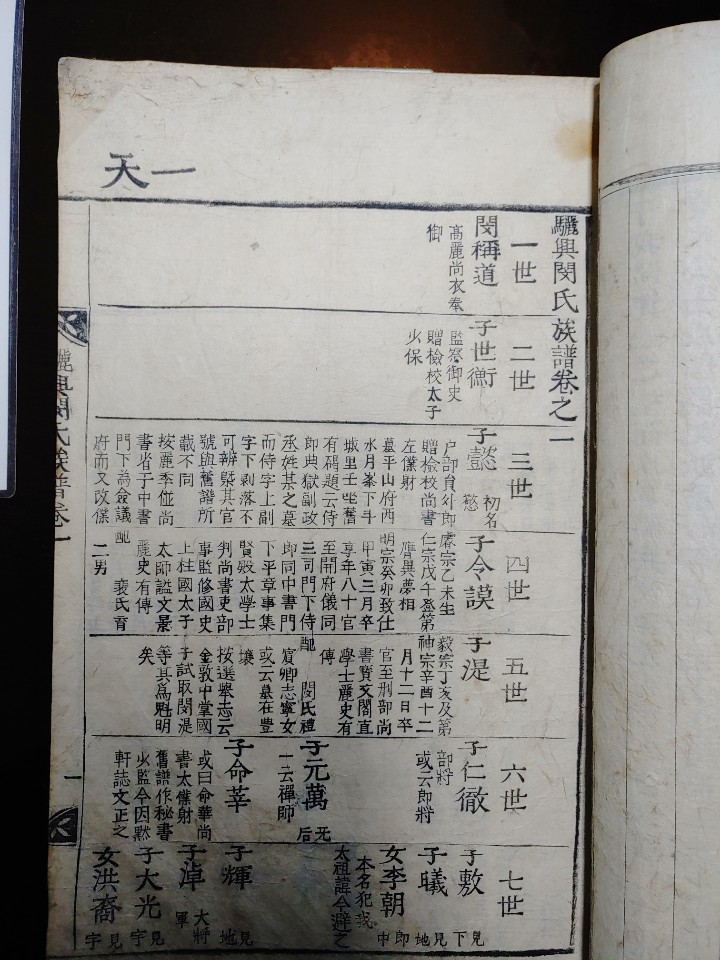 天一
驪興閔氏族譜卷之一
一世
閔稱道
高麗尚衣奉
御
二世
子世衡
監察御史
贈檢校太子
少保
三世
子懿
初名
慤
户部員外郎
贈檢校尚書
左僕射
墓平山府西
水月峯下斗
城里壬坐舊
有碣題云侍
郎典獄副政
丞姓某之墓
而侍字上副
字下剝落不
可辨槩其官
號與舊譜所
載不同
按麗季但尚
書省子中書
門下為僉議
府而又改僕
四世
子令謨
睿宗乙未生
仁宗戊午登第
膺異夢相
明宗癸卯致仕
甲寅三月卒
享年八十官
至開府儀同
三司門下侍
郎同中書門
下平章事集
賢殿太學士
判尚書吏部
事監修國史
上柱國太子
太師謚文景
麗史有傳
配
裵氏育
二男
五世
子湜
毅宗丁亥及第
神宗辛酉十二
月十二日卒
官至刑部尚
書寶文閣直
學士麗史有
傳
配
閔氏禮
賓卿志寧女
或云墓在豊
壤
按選擧志云
金敦中掌國
子試取閔湜
等其爲魁明
矣
六世
子仁徹
部將
或云郎將
子元萬
一云禪師
无
后
子命莘
或曰命華尚
書太僕射
舊譜作秘書
少監今因黙
軒誌文正之
七世
子敷
見
下
子曦
見
地
女李朝
郎
中
本名犯我
太祖諱今避之
子輝
見
地
子淖
大將
軍
子大光
見
宇
女洪裔
見
宇
驪興閔氏族譜卷一
一